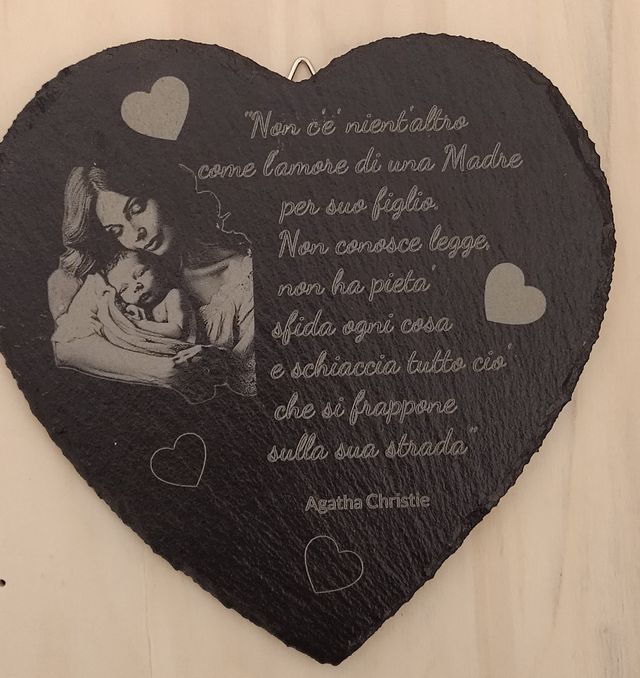 "Non c'e' nient'altro
come l'amore di una Madre
per suo figlio.
Non conosce legge,
non ha pieta'
sfida ogni cosa
e schiaccia tutto cio'
che si frappone
sulla sua strada"
Agatha Christie